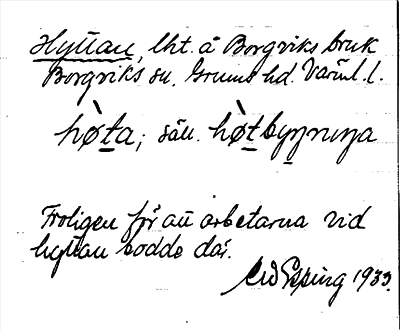 Hyttan, lht. å Borgviks bruk
Borgviks sn. Grums hd. Värml. l.
hø̀ta; säll. hø̀tbyŋnuŋa
Troligen för att arbetarna vid
hyttan bodde där.
1933.